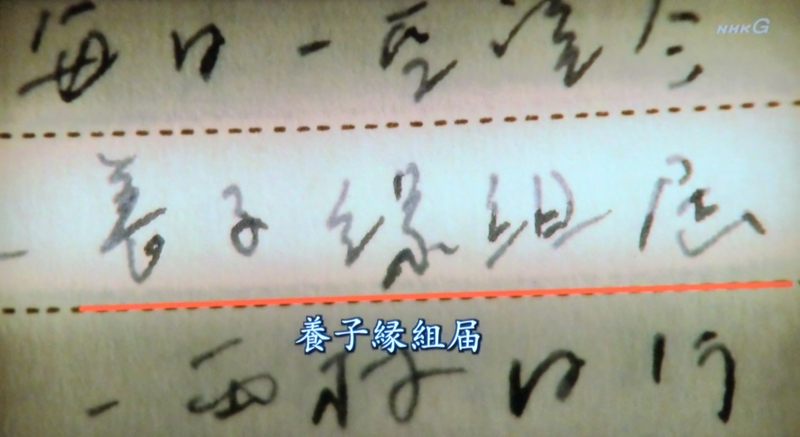 NHK G
毎日一
一養子縁組届
養子縁組届
一西村日行